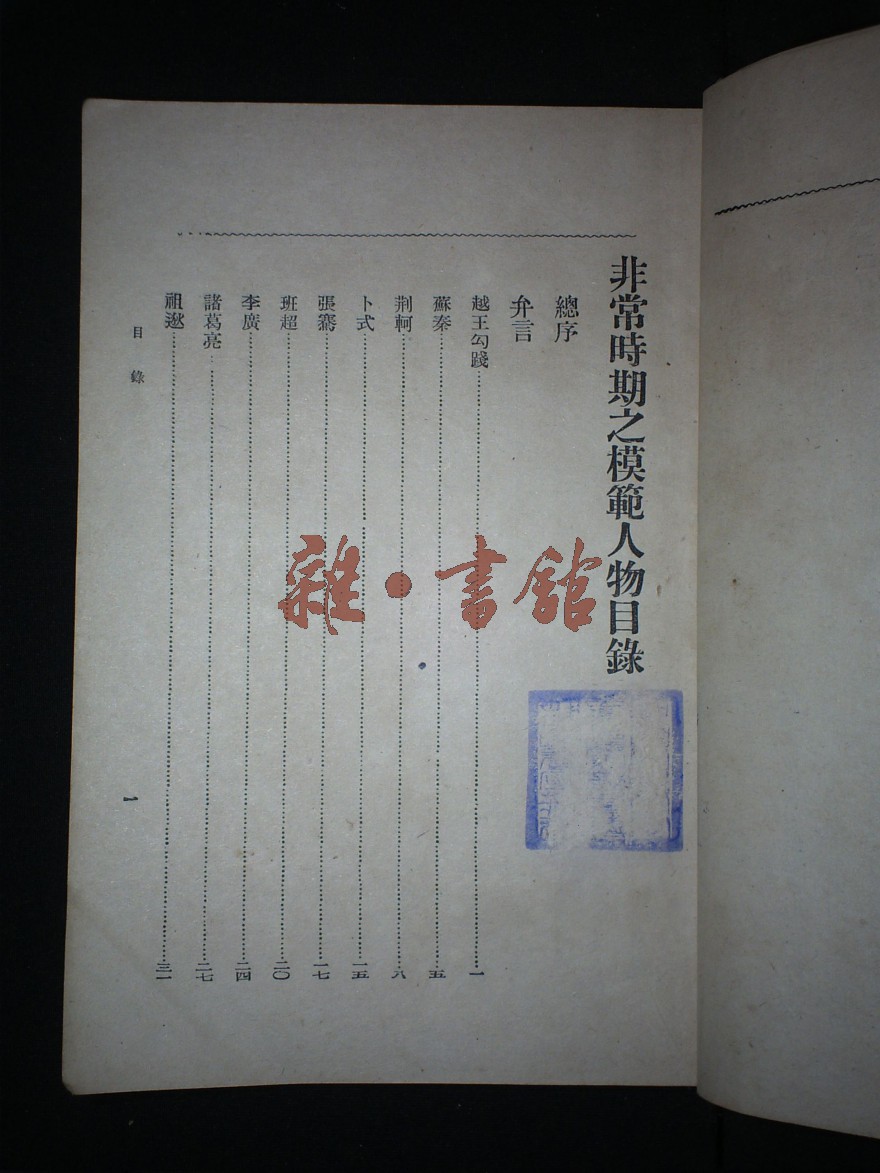 非常時期之模範人物目錄
總序
弁言
越王勾踐……一
蘇秦……五
荆軻……八
卜式……一五
張騫……一七
班超……二〇
李廣……二四
諸葛亮……二七
祖逖……三一
目錄
一
雜·書館